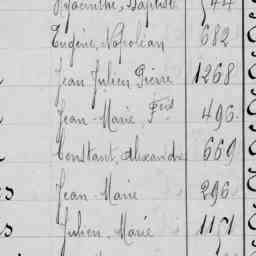 Hyacinthe, Baptiste 544
Eugène, Napoléon 682
Jean Julien Pierre 1268
Jean-Marie, Fois 496
Constant, Alexandre 669
Jean-Marie 296
Julien-Marie 1151